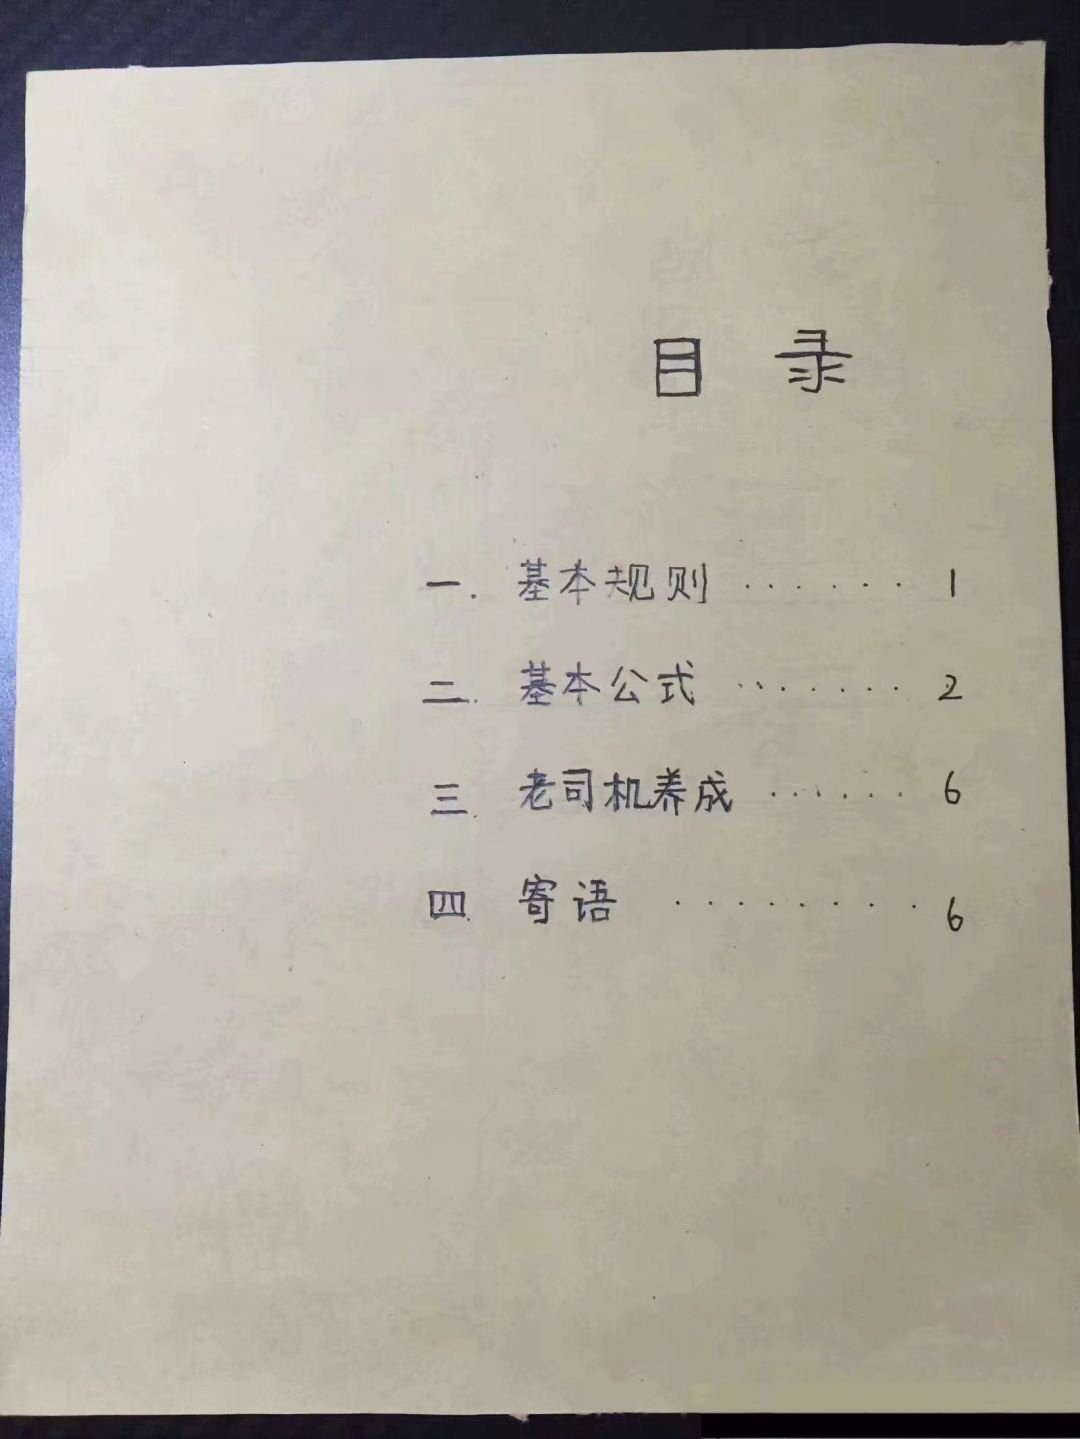 目 录
一. 基本规则 ······· 1
二. 基本公式 ········ 2
三. 老司机养成 ······ 6
四. 寄语 ········ 6